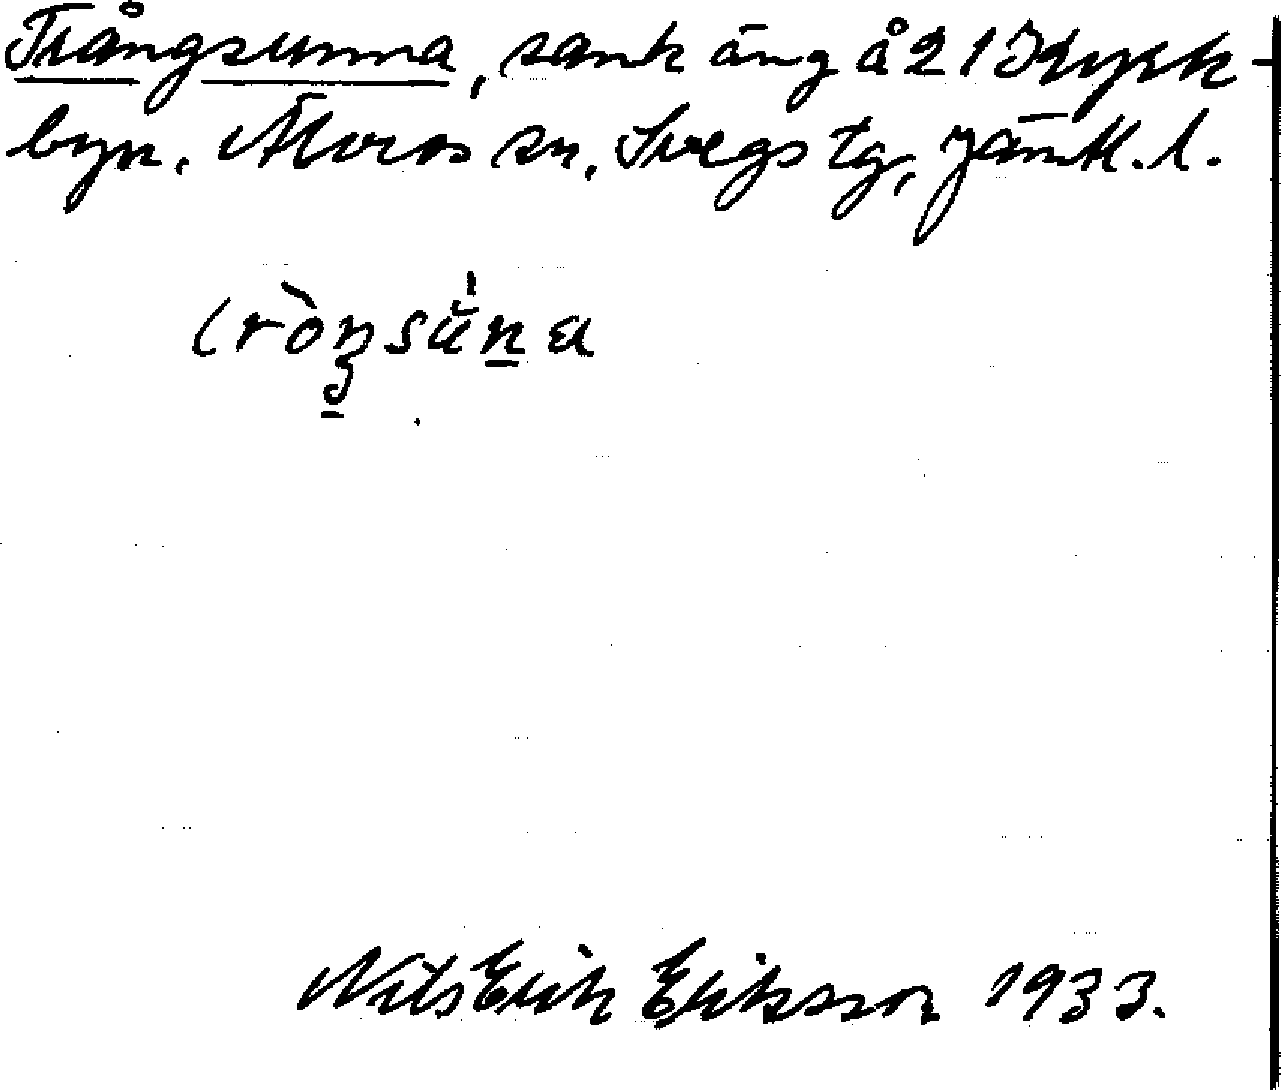 Trångsunna, sank äng å 21 Kyrk-
byn. Älvros sn, Svegs tg, Jämtl. l.
Nils Erik Eriksson 1933.